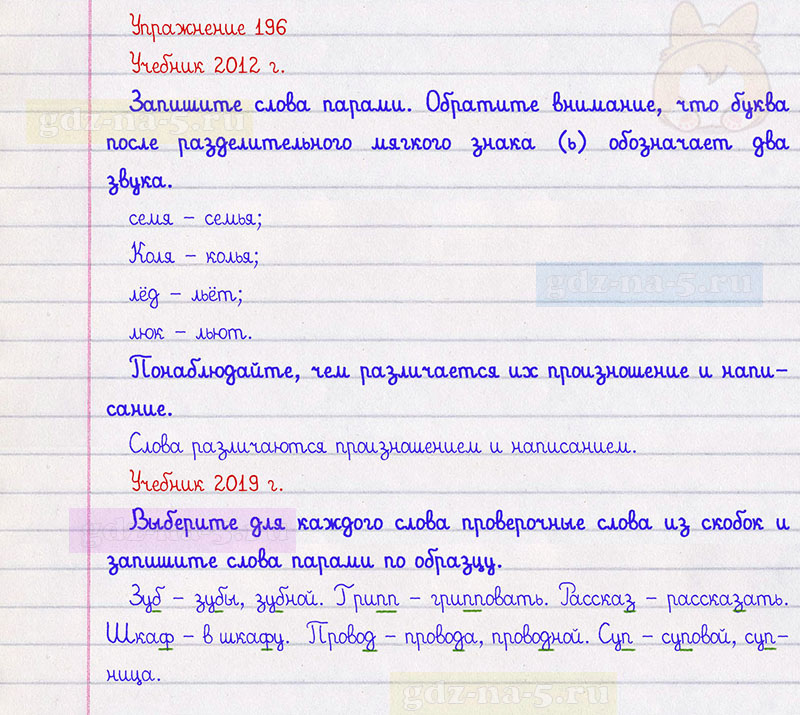 Упражнение 196
Учебник 2012 г.
Запишите слова парами. Обратите внимание, что буква
после разделительного мягкого знака (ь) обозначает два
звука.
семя – семья;
Коля – колья;
лёд – льёт;
люк – льют.
Понаблюдайте, чем различается их произношение и напи-
сание.
Слова различаются произношением и написанием.
Учебник 2019 г.
Выберите для каждого слова проверочные слова из скобок и
запишите слова парами по образцу.
Зуб – зубы, зубной. Грипп – грипповать. Рассказ – рассказать.
Шкаф – в шкафу. Провод – провода, проводной. Суп – суповой, суп-
ница.
gdz-na-5.ru
gdz-na-5.ru
gdz-na-5.ru
gdz-na-5.ru